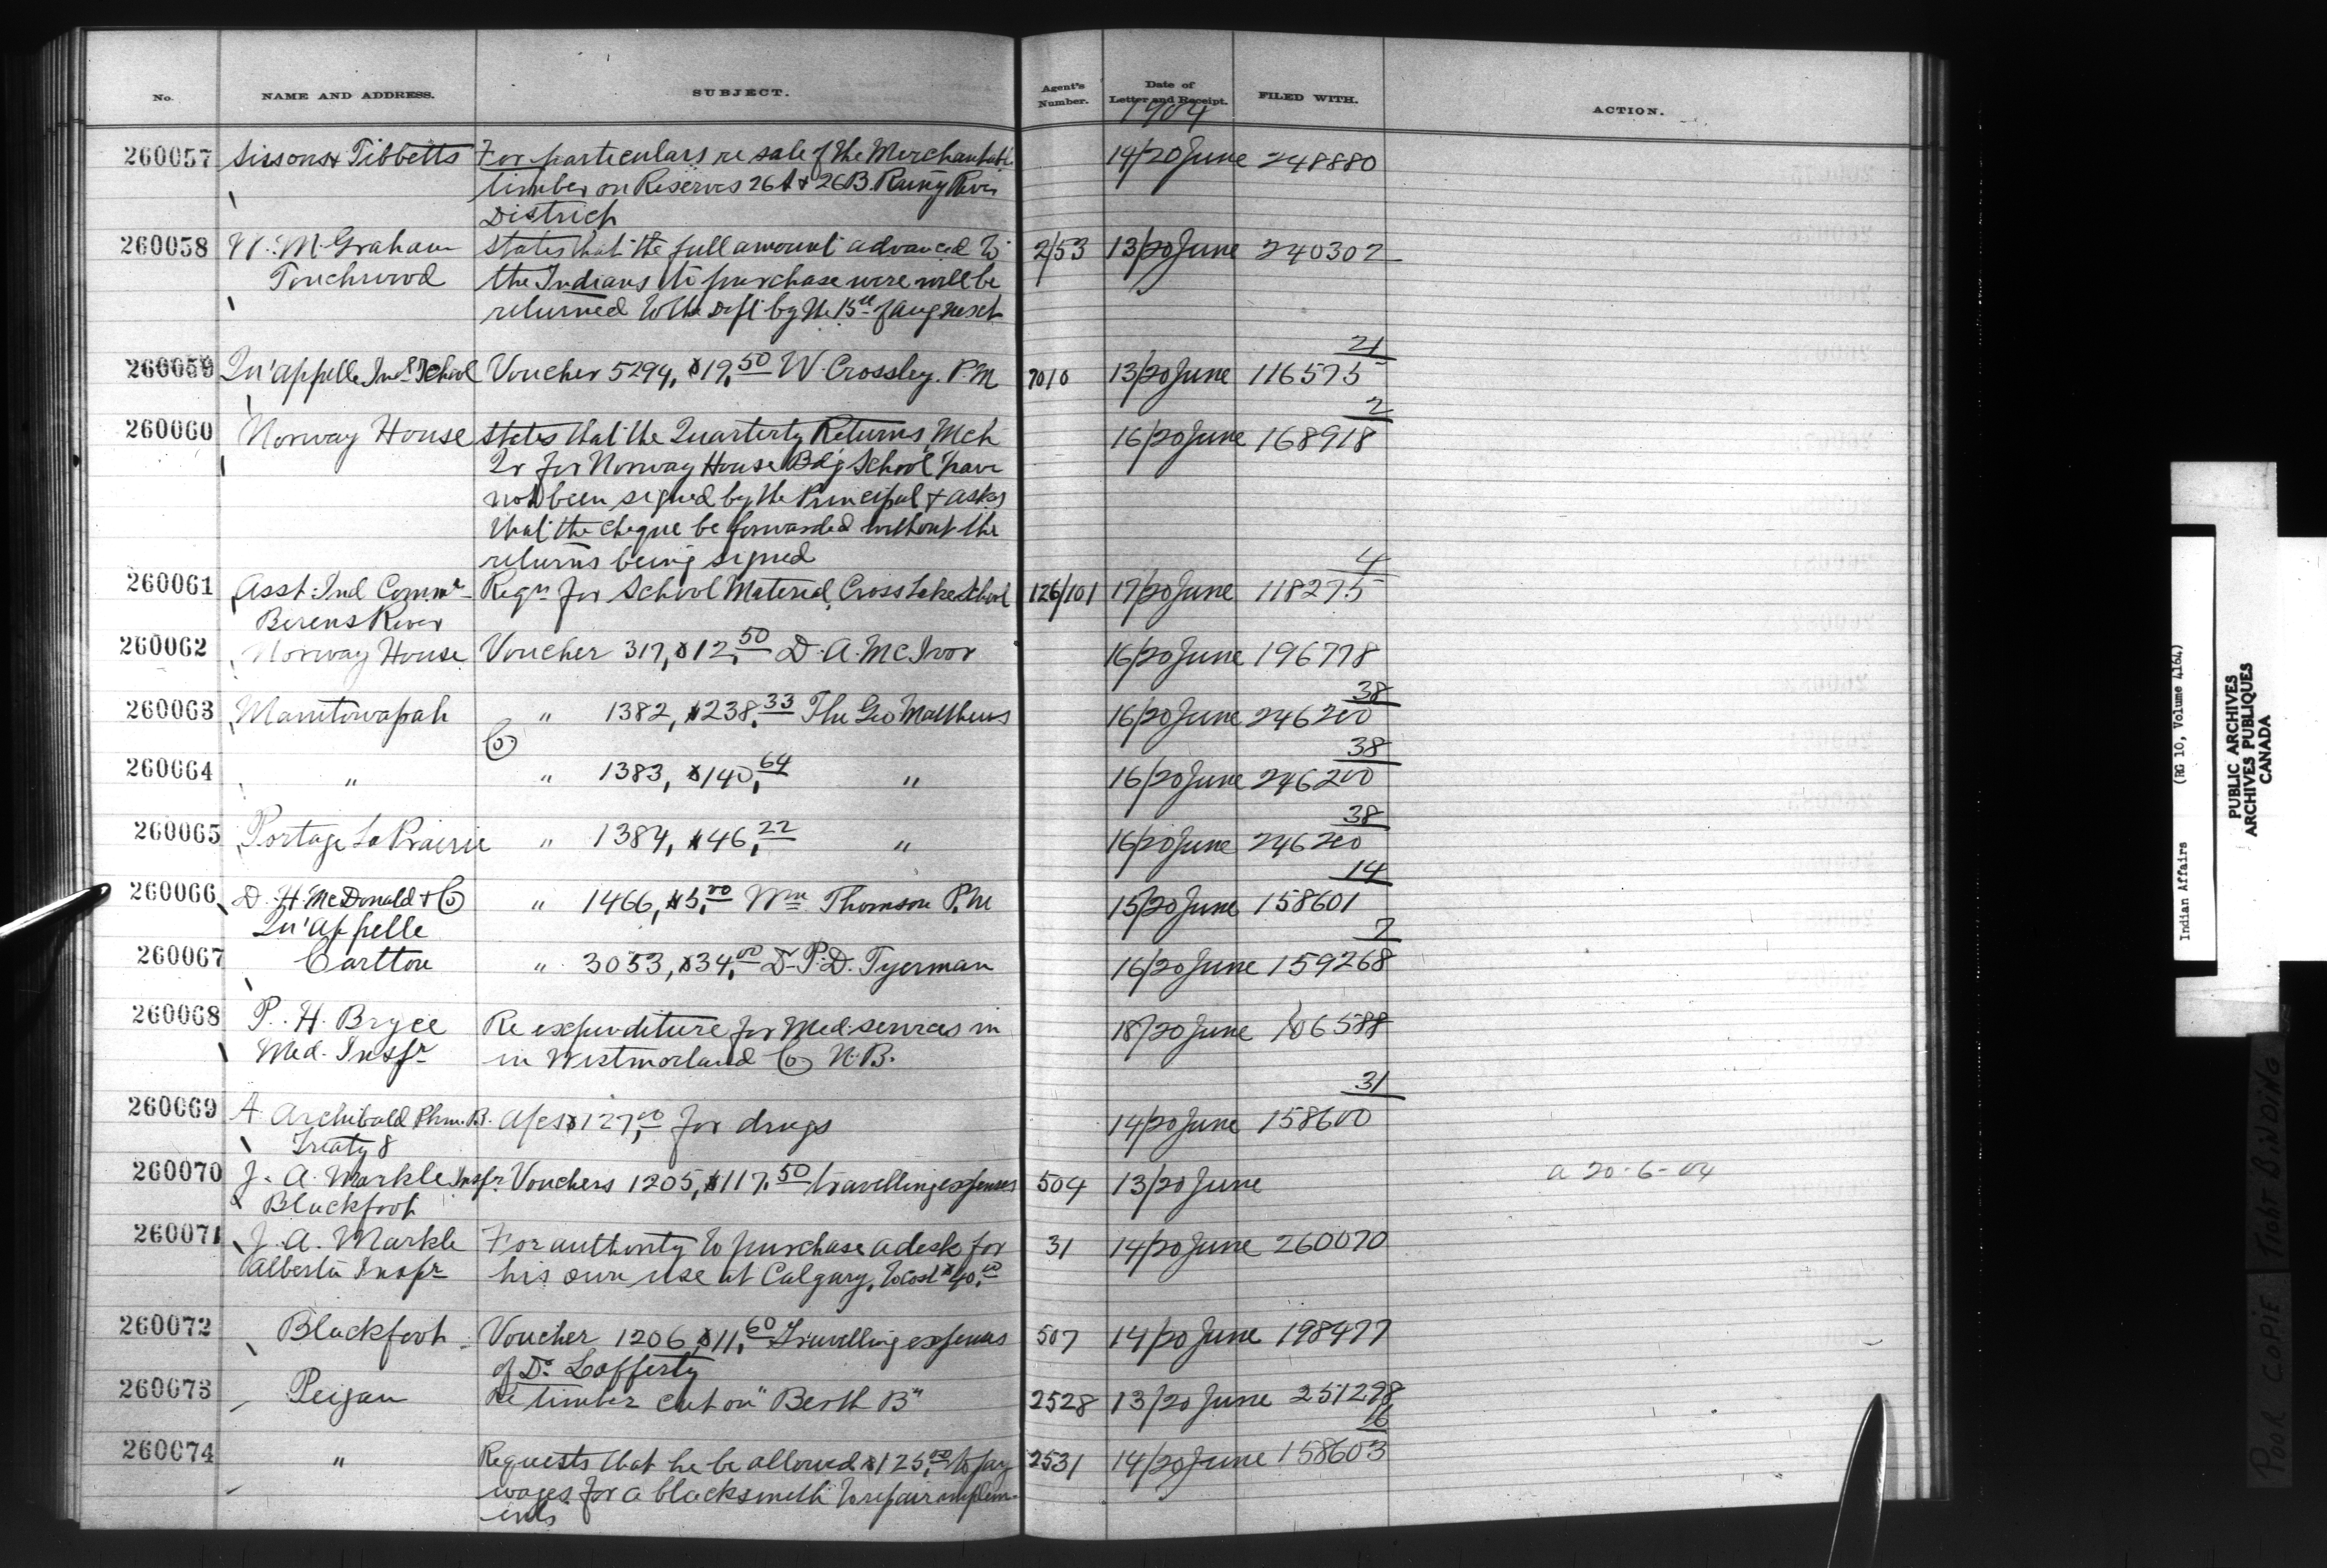 No. NAME AND ADDRESS. SUBJECT. Agent's Number. Date of Letter and Receipt. FILED WITH. ACTION.
1904
260057 Sissons & Tibbetts For particulars re sale of the Merchantable 14/20 June 248880
timber on Reserves 26A & 26B. Rainy River
District
260058 W. M. Graham states that the full amount advanced to 2/53 13/20 June 240302
Touchwood the Indians to purchase wire will be
returned to the Dept by the 15th of Aug next
21
260059 Qu'appelle Indl School Voucher 5294, $19.50 W. Crossley. P.M 7010 13/20 June 116575
2
260060 Norway House states that the Quarterly Returns Mch 16/20 June 168918
Qr for Norway House Bdg School have
not been signed by the Principal & asks
that the cheque be forwarded without the
returns being signed
4
260061 Asst. Ind Commr Reqn for School Material, Cross Lake School 126/101 17/20 June 118275
Berens River
260062 Norway House Voucher 317, $12.50 D. A. McIvor 16/20 June 196778
38
260063 Manitowapah " 1382, $238.33 The Geo Matthews 16/20 June 246200
Co.
38
260064 " " 1383, $140.64 " 16/20 June 246200
38
260065 Portage La Prairie " 1384, $46.22 " 16/20 June 246200
14
260066 D. H. McDonald & Co " 1466, $5.00 Wm Thomson P.M 15/20 June 158601
Qu'appelle
7
260067 Carlton " 3053, $34.00 Dr P. D. Tyerman 16/20 June 159268
260068 P. H. Bryce Re expenditure for Med. services in 18/20 June 106588
Med. Inspr in Westmorland Co N.B.
31
260069 A. Archibald Phm. B. A/cs $127.00 for drugs 14/20 June 158600
Treaty 8
260070 J. A. Markle Inspr Vouchers 1205, $117.50 travelling expenses 504 13/20 June a 20-6-04
Blackfoot
260071 J. A. Markle For authority to purchase a desk for 31 14/20 June 260070
Alberta Inspr his own use at Calgary, to cost $40.00
260072 Blackfoot Voucher 1206, $11.60 Travelling expenses 507 14/20 June 198477
of Dr Lafferty
260073 Peigan Re timber cut on "Berth B" 2528 13/20 June 251298
16
260074 " Requests that he be allowed $125.00 to pay 2531 14/20 June 158603
wages for a blacksmith to repair implem-
ents
Indian Affairs (RG 10, Volume 4164)
PUBLIC ARCHIVES
ARCHIVES PUBLIQUES
CANADA
POOR COPIE TIGHT BINDING